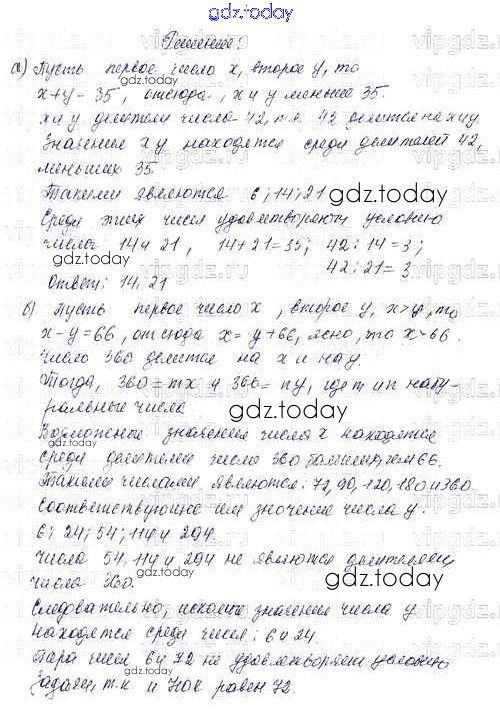 gdz.today
Решение:
а) Пусть первое число x, второе y, то
gdz.today
x+y=35, отсюда, x и y меньше 35.
x и y делители числа 42, т.е. 42 делится на x и y.
Значения x y находятся среди делителей 42,
меньших 35.
Такими являются 6; 14; 21
gdz.today
Среди этих чисел удовлетворяют условию
числа 14 и 21, 14+21=35; 42:14=3;
42:21=3
gdz.today
Ответ: 14, 21
б) Пусть первое число x, второе y, x>y, то
gdz.today
x-y=66, отсюда x=y+66, ясно, что x>66.
Число 360 делится на x и на y.
Тогда, 360=mx и 360=ny, где m и n нату-
ральные числа
gdz.today
Возможные значения числа x находятся
среди делителей числа 360 больших, чем 66.
Такими числами являются: 72, 90, 120, 180 и 360
Соответствующие им значение числа y:
6; 24; 54; 114 и 294.
Числа 54, 114 и 294 не являются делителями
числа 360.
gdz.today
Следовательно, искомые значения числа y
находятся среди чисел: 6 и 24.
Пара чисел 6 и 72 не удовлетворяет условию
gdz.today
задачи, т.к. и НОК равен 72.